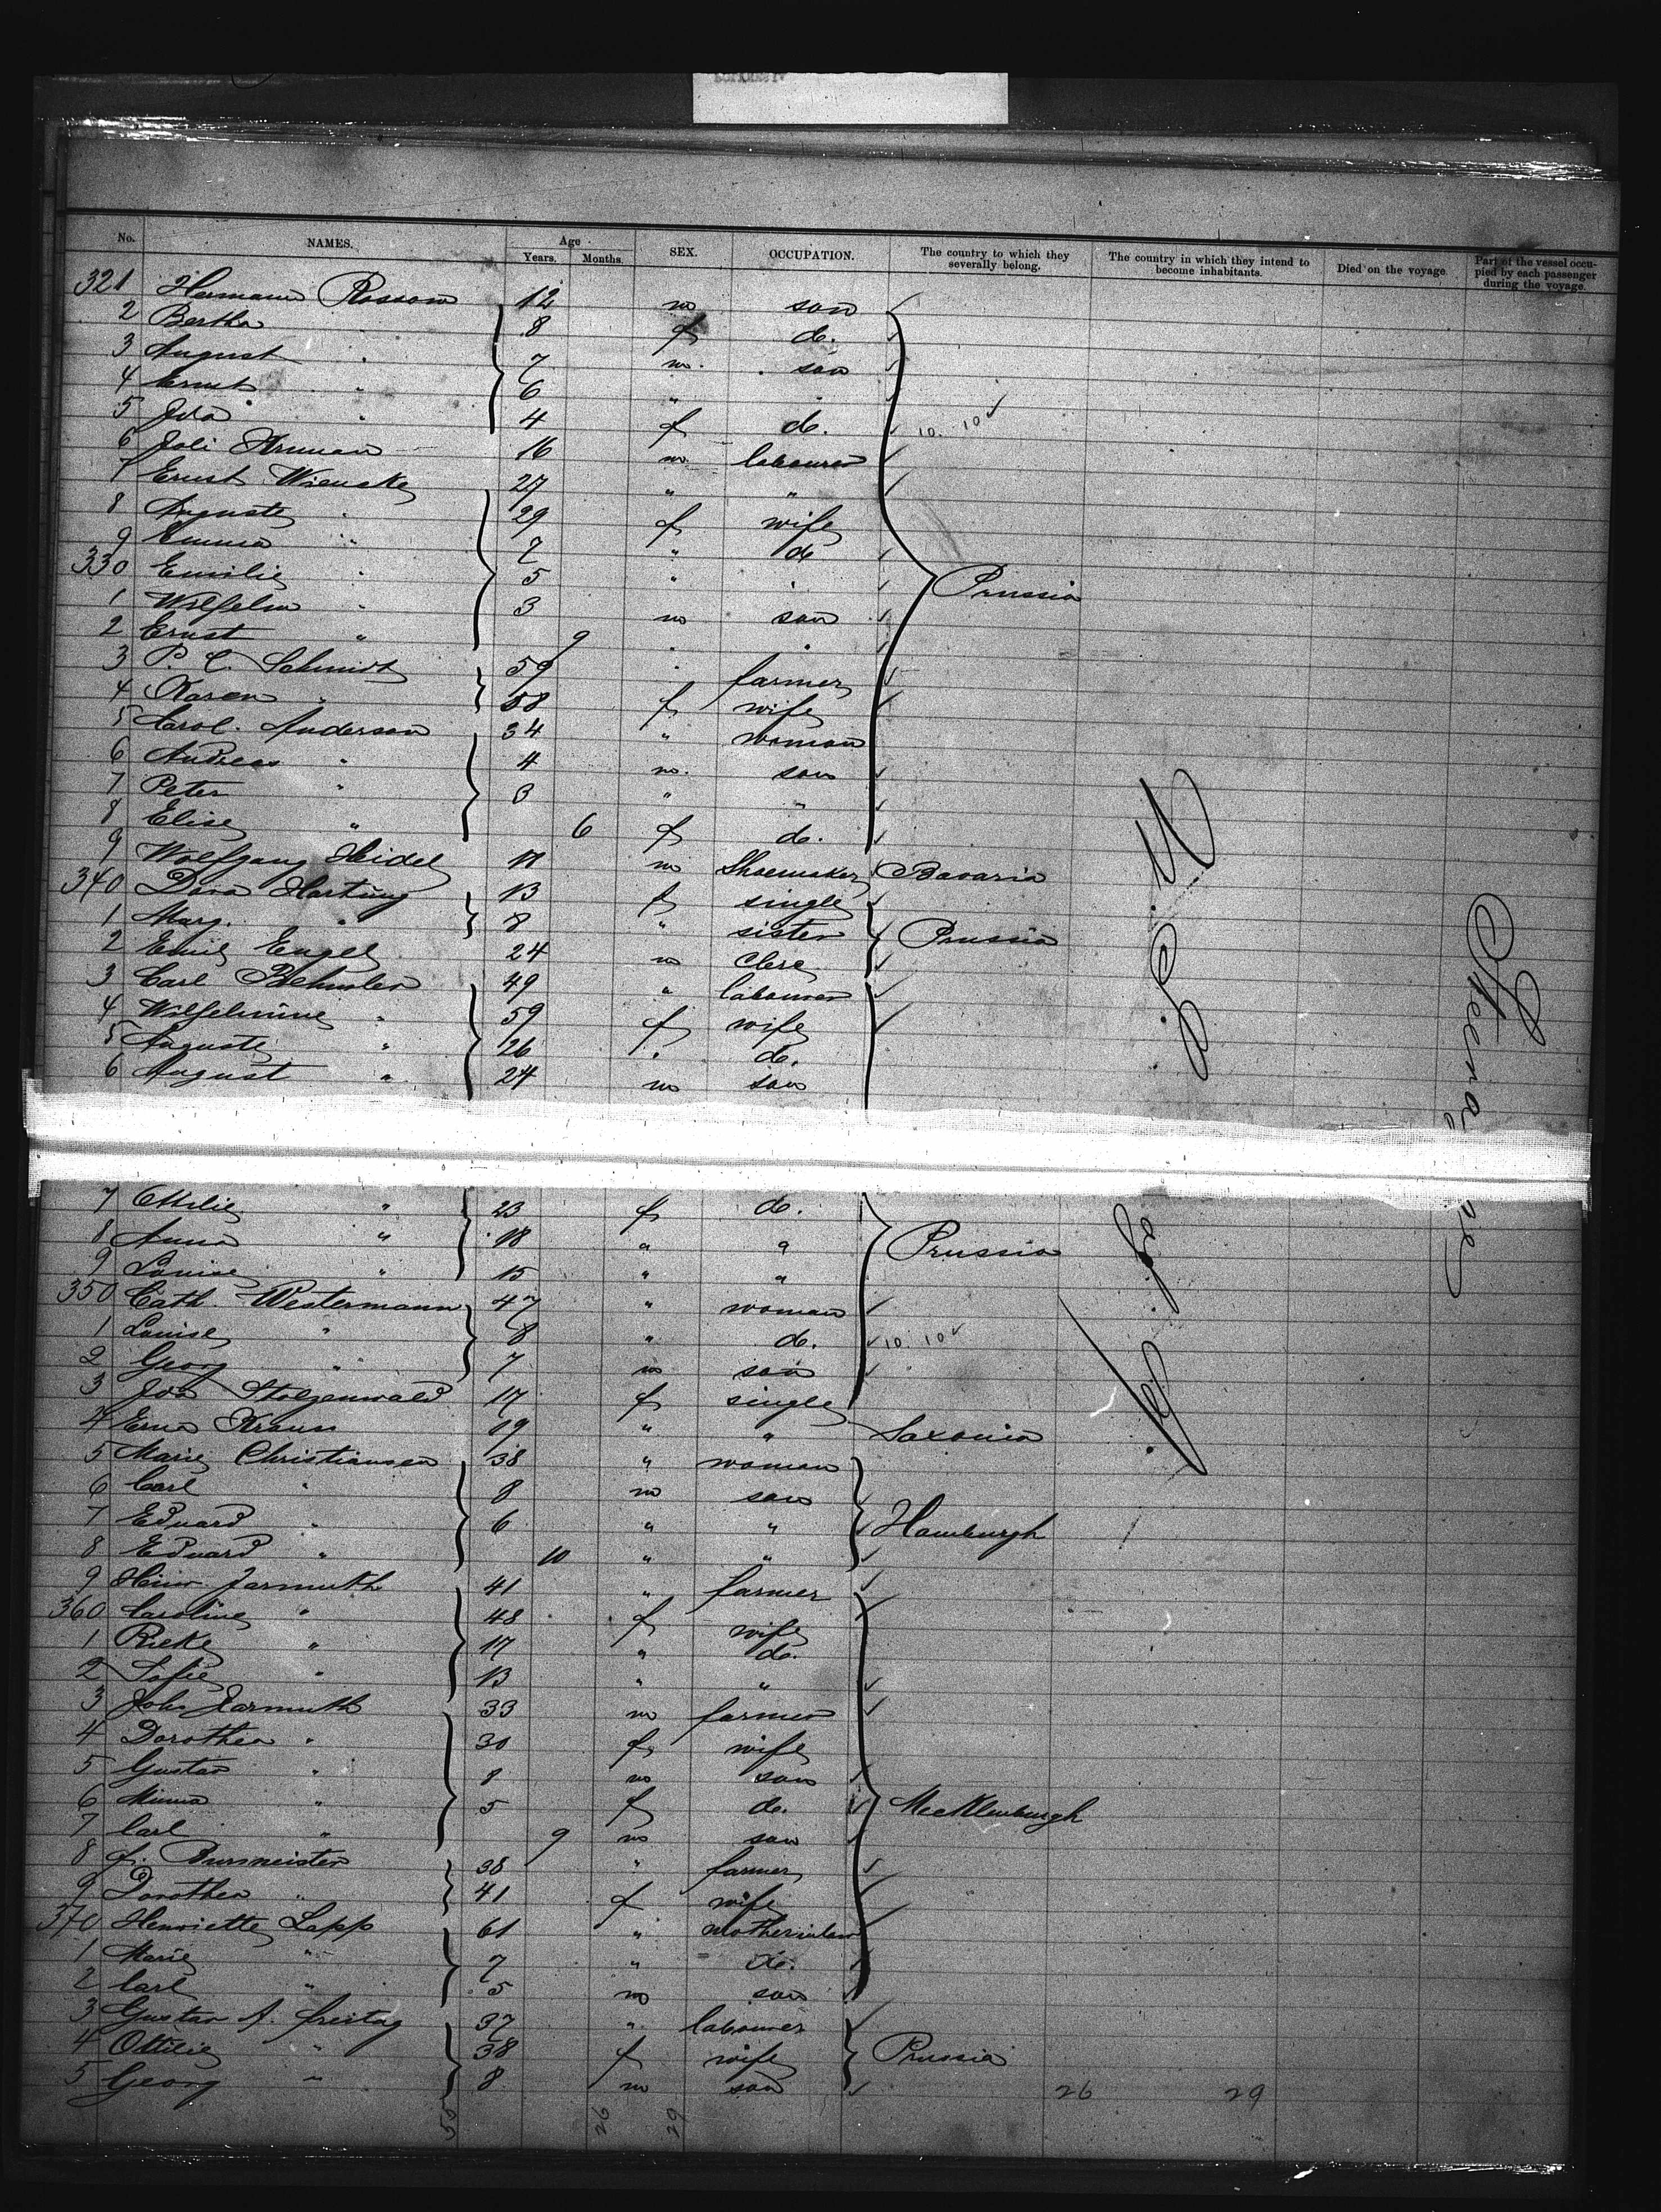 No. NAMES. Age Years. Months. SEX. OCCUPATION. The country to which they severally belong. The country in which they intend to become inhabitants. Died on the voyage. Part of the vessel occupied by each passenger during the voyage.
321 Hermann Rossow 12 m son
2 Bertha " 8 f d.
3 August " 7 m. son
4 Ernst " 6 " "
5 Ida " 4 f d. 10. 10
6 16 m labourer
7 Ernst Wienske 27 " "
8 Auguste " 29 f wife
9 Emma " 7 " d
330 Emilie " 5 " "
Prussia
1 Wilhelm " 3 m son
2 Ernst " 9 " "
3 P. C. Schmidt 59 " farmer
4 Karen " 58 f wife
5 Carol. Anderson 34 " woman
6 Andreas " 4 m. son
7 Peter " 3 " "
8 Elise " 6 f d.
9 Wolfgang Heidel 18 m Shoemaker Bavaria
340 Dora Hartung 13 f single
1 Marg. " 8 " sister Prussia
2 Emil Engel 24 m Clerc
3 Carl 49 " labourer
4 Wilhelmine " 59 f wife
5 Auguste " 26 " d.
6 August " 24 m son
U. S. of A.
Steerage
7 Ottilie " 23 f d.
8 Anna " 18 " " Prussia
9 Louise " 15 " "
350 Cath. Westermann 47 " woman
1 Louise " 8 " d. 10. 10
2 Georg " 7 m son
3 Ida Stolzenwald 17 f single
4 Erna Kraus 19 " " Saxonia
5 Marie Christiansen 38 " woman
6 Carl " 8 m son
7 Eduard " 6 " " Hamburgh
8 Eduard " 10 " "
9 Heinr. Jarmuth 41 " farmer
360 Caroline " 48 f wife
1 Rieke " 17 " d.
2 Sofie " 13 " "
3 Joh. Jarmuth 33 m farmer
4 Dorothea " 30 f wife
5 Gustav " 8 m son
6 Minna " 5 f d. Mecklenburgh
7 Carl " 9 m son
8 f. Burmeister 38 " farmer
9 Dorothea " 41 f wife
370 Henriette Lapp 61 " motherinlaw
1 Marie " 7 " d.
2 Carl " 5 m son
3 Gustav A. Freitag 37 " labourer
4 Ottilie " 38 f wife Prussia
5 Georg " 8 m son
26 29
55 26 29